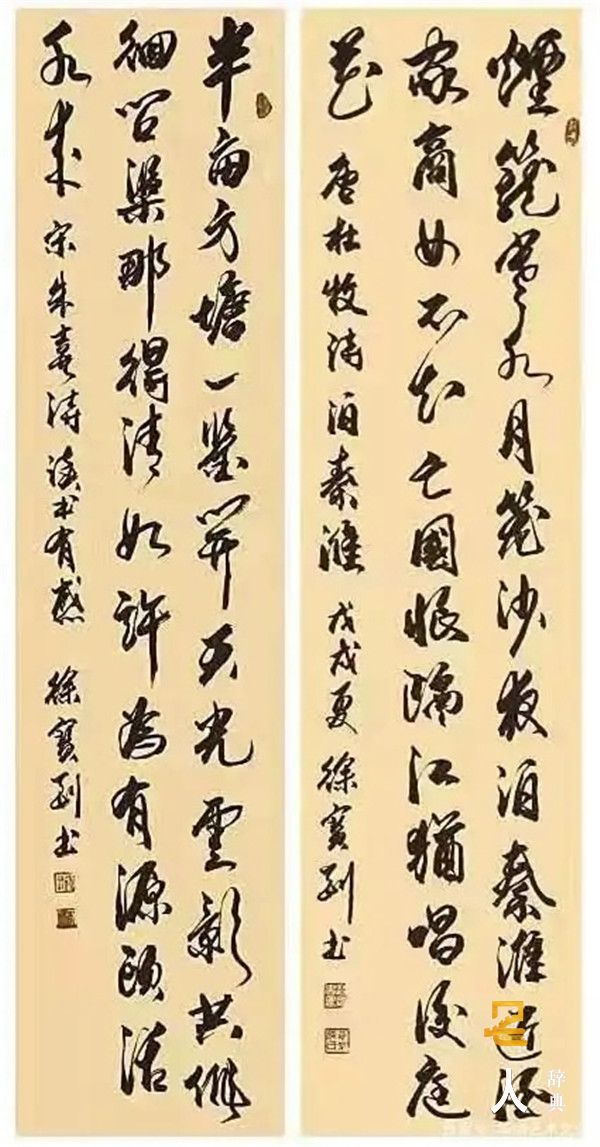 煙籠寒水月籠沙夜泊秦淮近酒
家商女不知亡國恨隔江猶唱後庭
花 唐杜牧詩泊秦淮 戊戌夏 徐寶书
半畝方塘一鑒開天光雲影共徘
徊问渠那得清如許為有源頭活
水来 宋朱熹詩读书有感 徐寶书
人
辞典